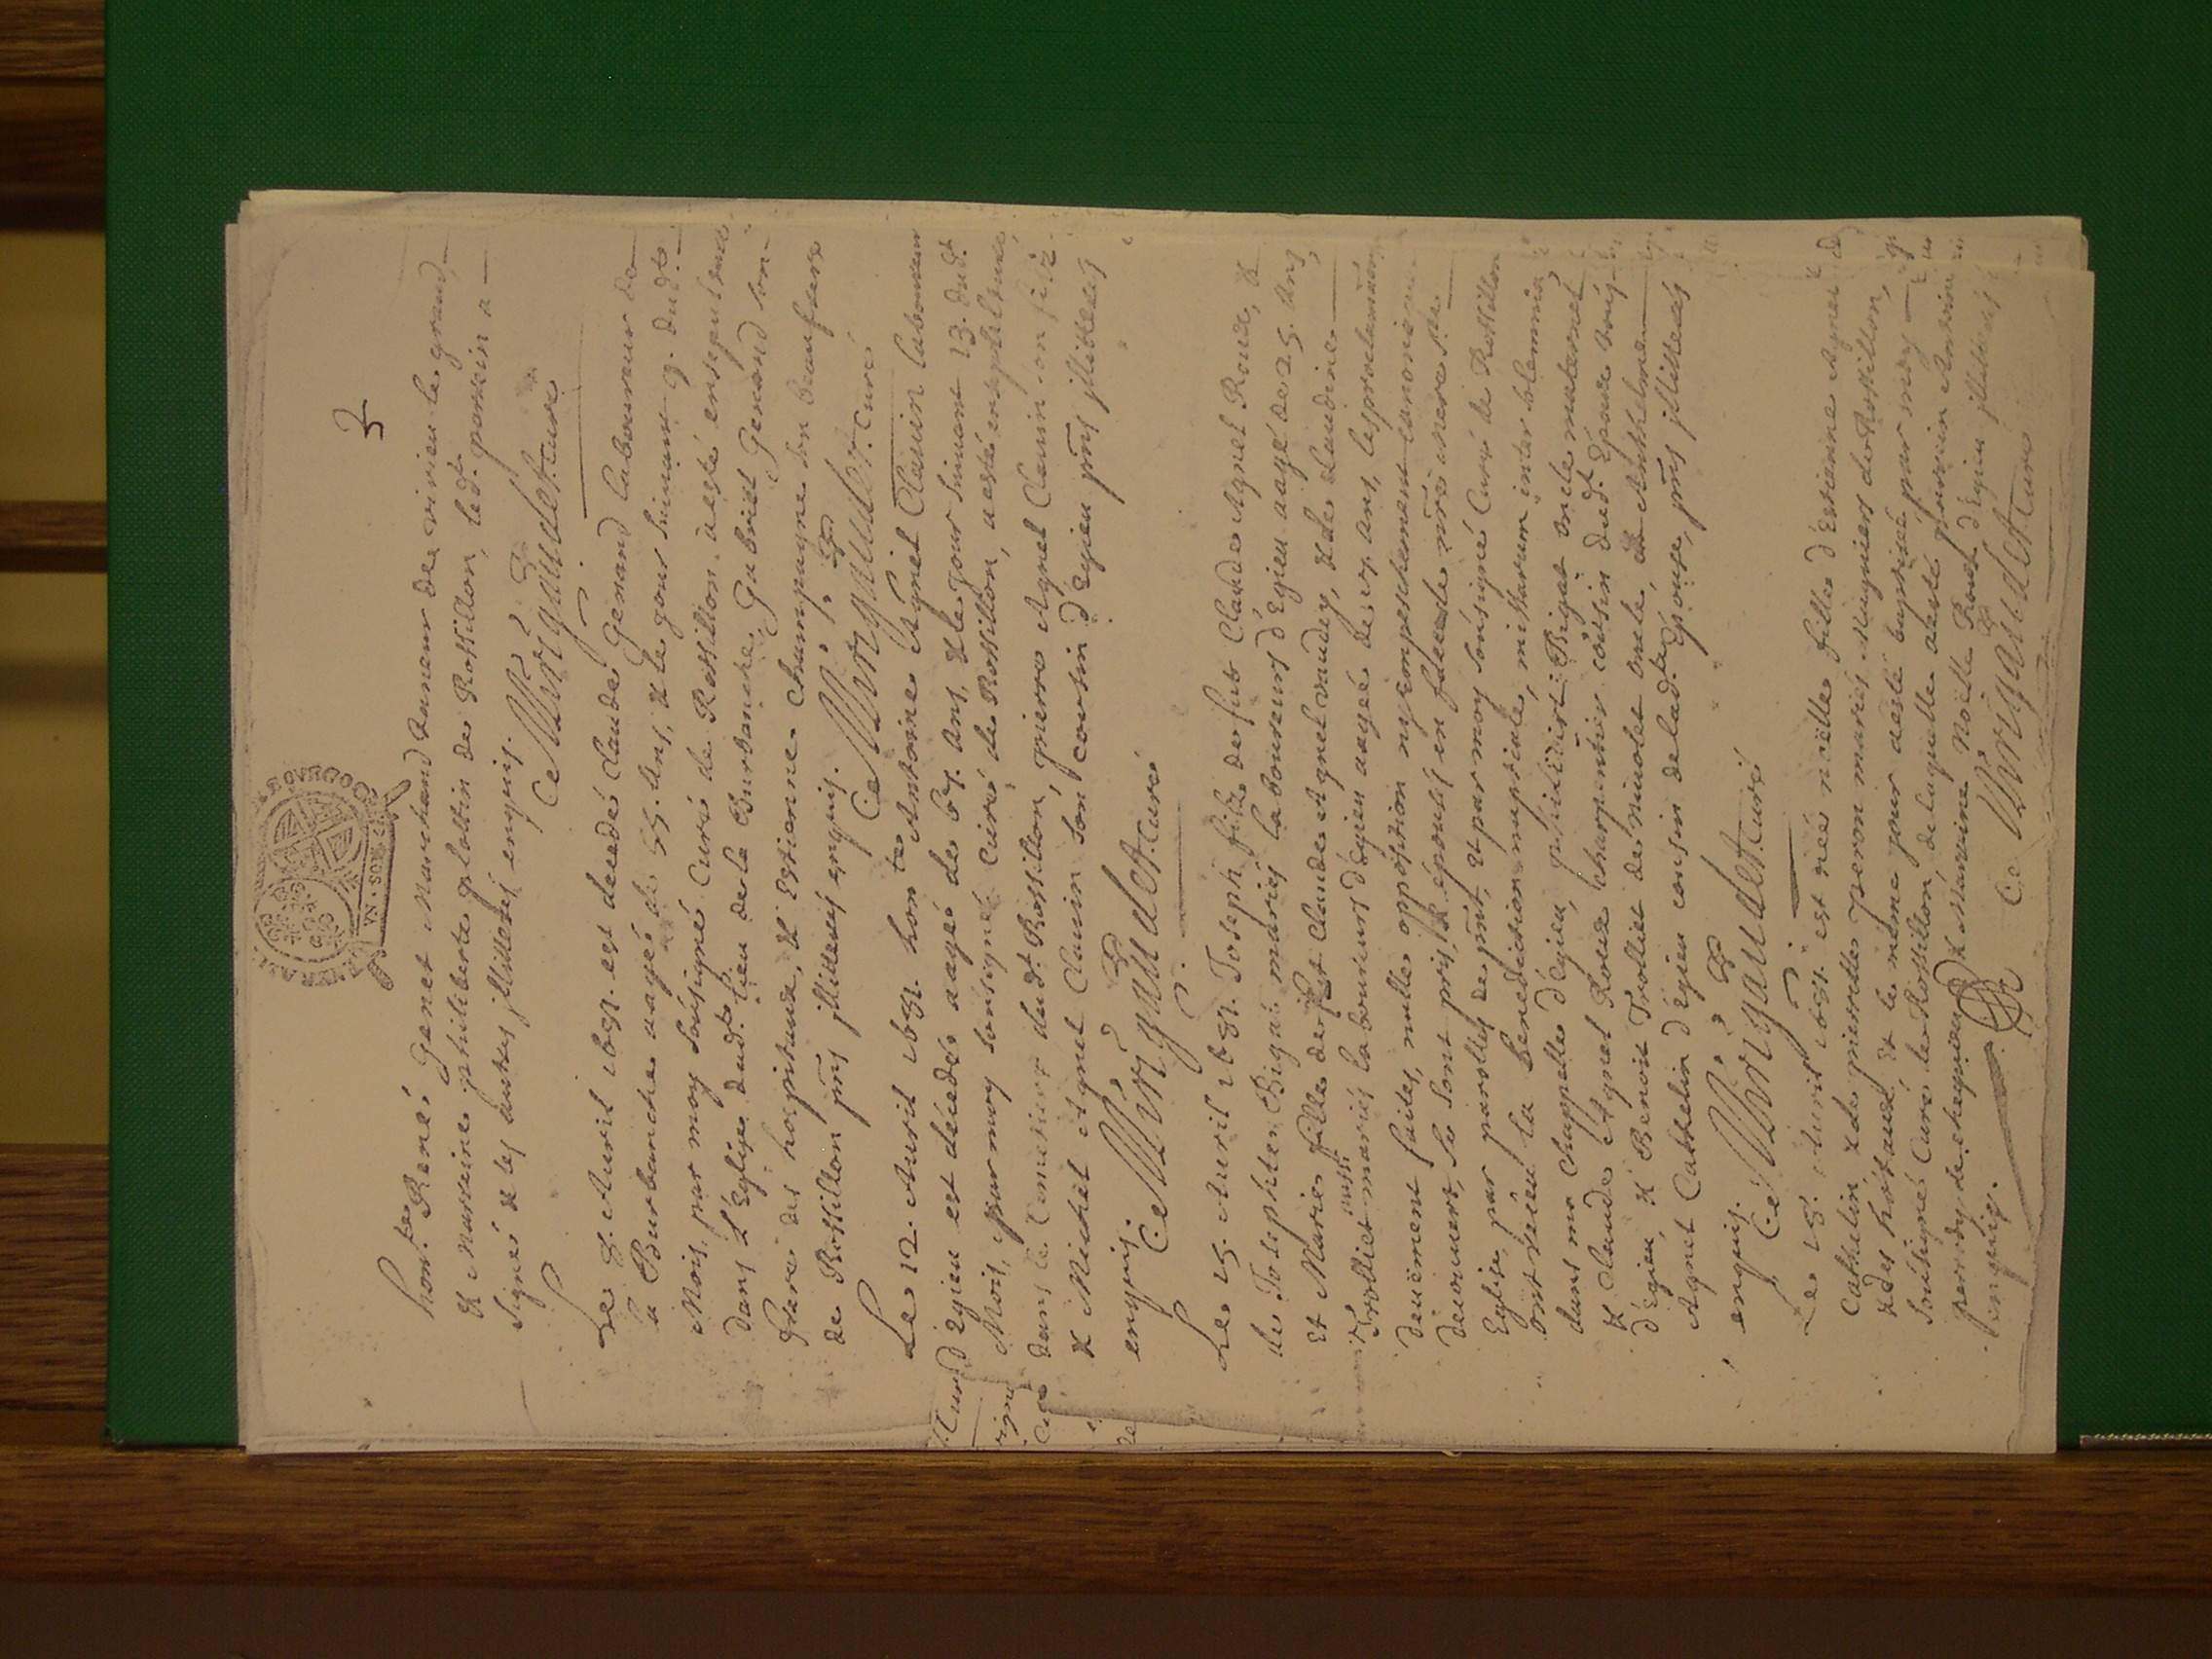 3
GN. BOVRGOG
VN. SOL
hon.te René Genet Marchand Taneur de virieu le grand,
& Marreine philiberte plattin de Rossillon, led.t parrein a
signé & les autres illitterés enquis.
C. Mirigaudet. curé
Le 8. Auril 1691. est decedé Claude Genand laboureur de
la Burbanche aagé de 55. Ans, & le jour suiuant 9. dud.t
Mois, par moy sousigné Curé de Rossillon a esté ensepulturé
dans l'Eglise dud.t lieu de la Burbanche. Gabriel Genand son
frere des hospitaux, & Estienne Champagne son beaufrere
de Rossillon pñs illitterés enquis.
C. Mirigaudet. curé
Le 12. Auril 1691. hon.te Antoine Agnel Clauin laboureur
d'Egieu est décedé aagé de 67. Ans, & le jour suiuant 13. dud.t
Mois, par moy sousigné curé de Rossillon, a esté ensepulturé
dans le Cemetiere dud.t Rossillon, pierre Agnel Clauin son filz
& Michel Agnel Clauin son cousin d'Egieu pñs illitterés
enquis.
C. Mirigaudet. curé
Le 15. Auril 1691. Joseph filz de fut Claude Agnel Roux, &
de Josephte Bigat mariés laboureurs d'Egieu aagé de 25. Ans,
Et Marie fille de fut Claude Agnel vaudey, & de Claudine
Trolliet aussi mariés laboureurs d'Egieu aagée de 17. Ans, les proclamations
deuëment faites, nulle opposition ny empeschement canonique
decouuert, se sont pris & épousés en face de nrē mere S.te
Eglise, par parolles de pñt, & par moy sousigné Curé de Rossillon
ont receu la benediction nuptiale, missarum inter solemnia,
dans ma chappelle d'Egieu, Bigat oncle maternel
& Claude Agnel Roux charpentier cousin dud.t Epoux tous
d'Egieu, & Benoit Trolliet de oncle, & Anthelme
Agnel Cathelin d'Egieu cousin de lad.te Epouse, pñs illitterés
enquis.
C. Mirigaudet. curé
Le Auril 1691. est née noëlle fille d'Estienne Agnel
Cathelin, & de pierrette peron mariés Magniers de Rossillon,
& des hostaux, & le même jour a esté baptisée par moy
sousigné Curé de Rossillon, de laquelle a esté parrein Antoine
& Marreine noëlle d'Egieu illitterés
enquis.
C. Mirigaudet. curé